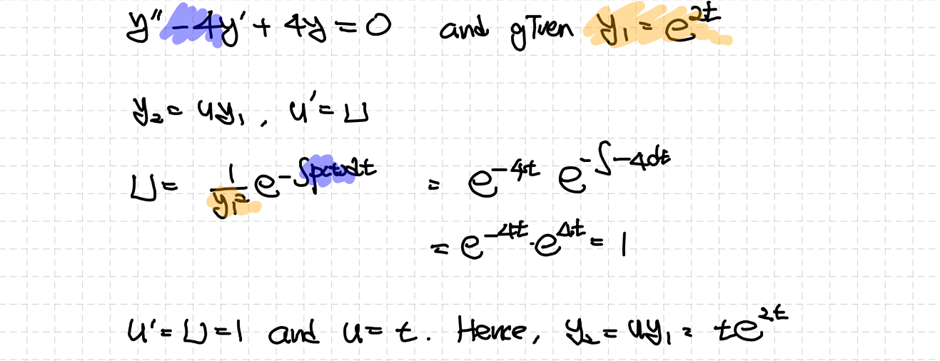 y'' - 4y' + 4y = 0 and given y₁ = e^{2t}
y₂ = uy₁, u' = U
U = 1/y₁² e^{-∫p(t)dt} = e^{-4t} e^{-∫-4dt}
= e^{-4t} · e^{4t} = 1
u' = U = 1 and u = t. Hence, y₂ = uy₁ = te^{2t}